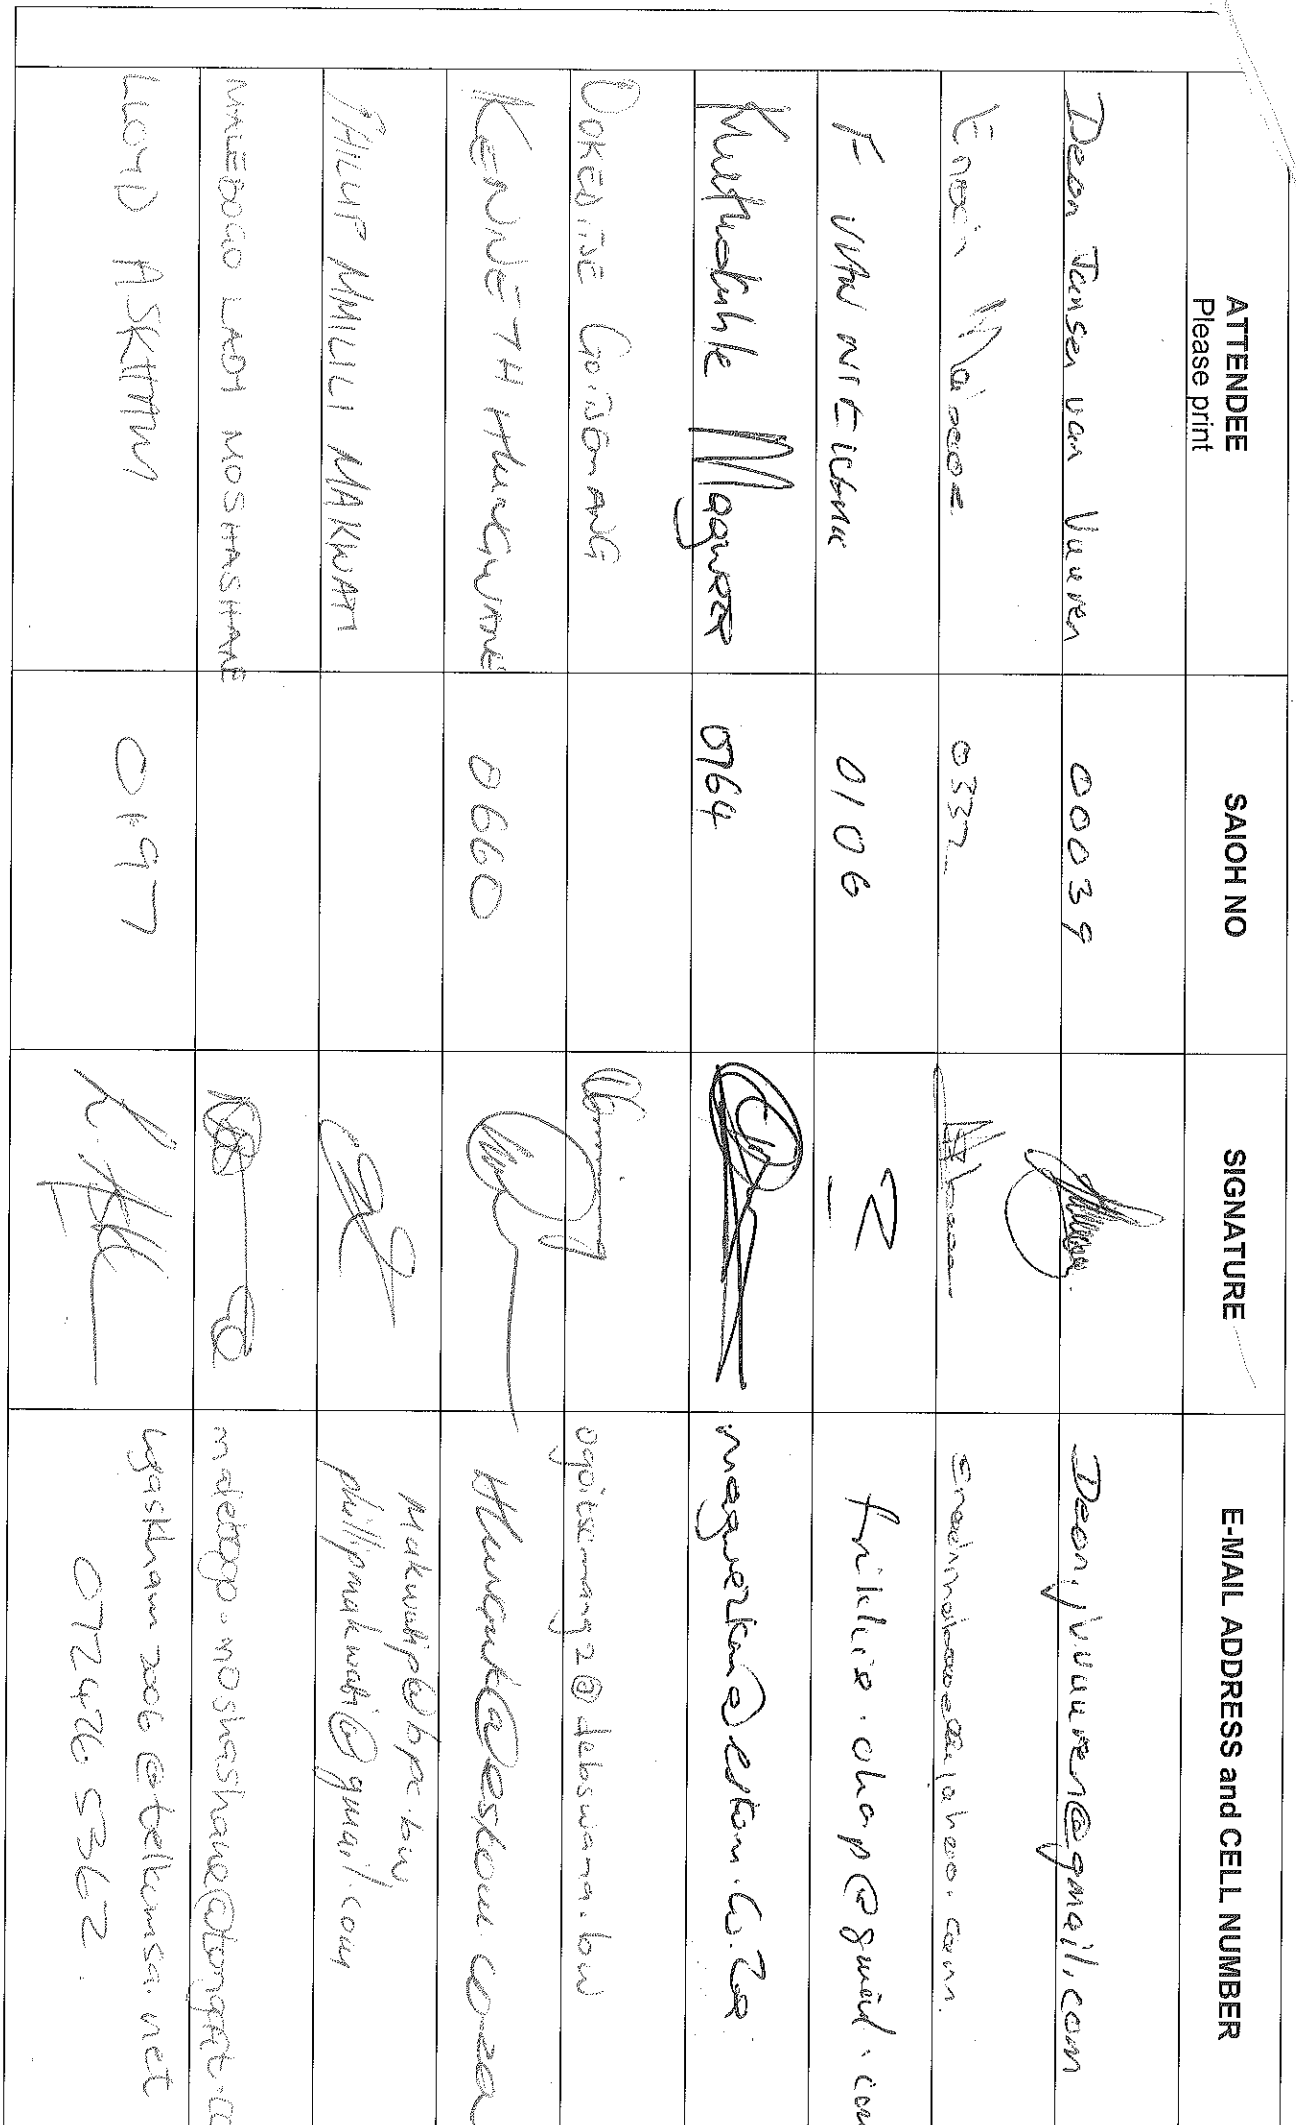 ATTENDEE SAIOH NO SIGNATURE E-MAIL ADDRESS and CELL NUMBER
Please print
Deon Jansen van Vuuren 00039 Deon.jvuuren@gmail.com
0337
F VAN NIEKERK 0106 frikkie.ohap@gmail.com
Khuthadzile Magwaza 0764 magwazkm@eskom.co.za
OOKEDITSE GOITSEMANG ogoitsemang2@debswana.bw
KENNETH HLUNGWANE 0660 HlungwK@eskom.co.za
PHILLIP MMILILI MAKWATI makwatip@bpc.bw
phillipmakwati@gmail.com
MALEBOGO LADY MOSHASHANE malebogo.moshashane@tongaat.co
LLOYD ASKHAM 0197 lgaskham2006@telkomsa.net
072426 5362.